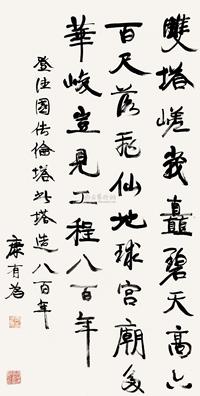 雙塔嵯峩矗碧天高六
百尺若飛仙地球宮廟多
華峻豈見工程八百年
登德國倫塔此塔造八百年
康有為